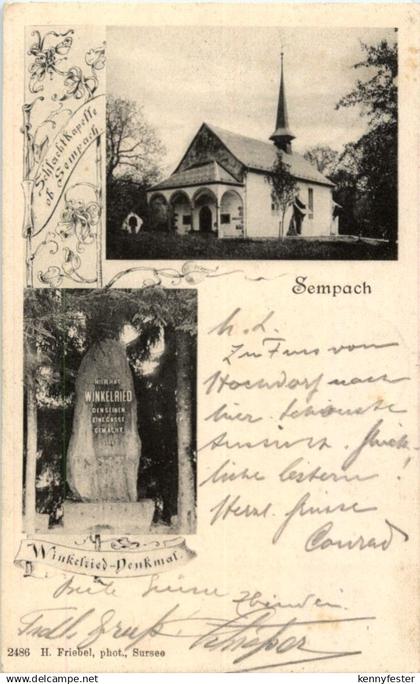 Schlachtkapelle
ob Sempach.
Sempach
HIER HAT
WINKELRIED
DEN SEINEN
EINE GASSE
GEMACHT
Zu Fuss von
Hochdorf nach
hier. Schönste
Aussicht.
liche
Herzl. Grüsse
Conrad
Winkelried-Denkmal.
Beste Grüsse
2486 H. Friebel, phot., Sursee
kennyfester